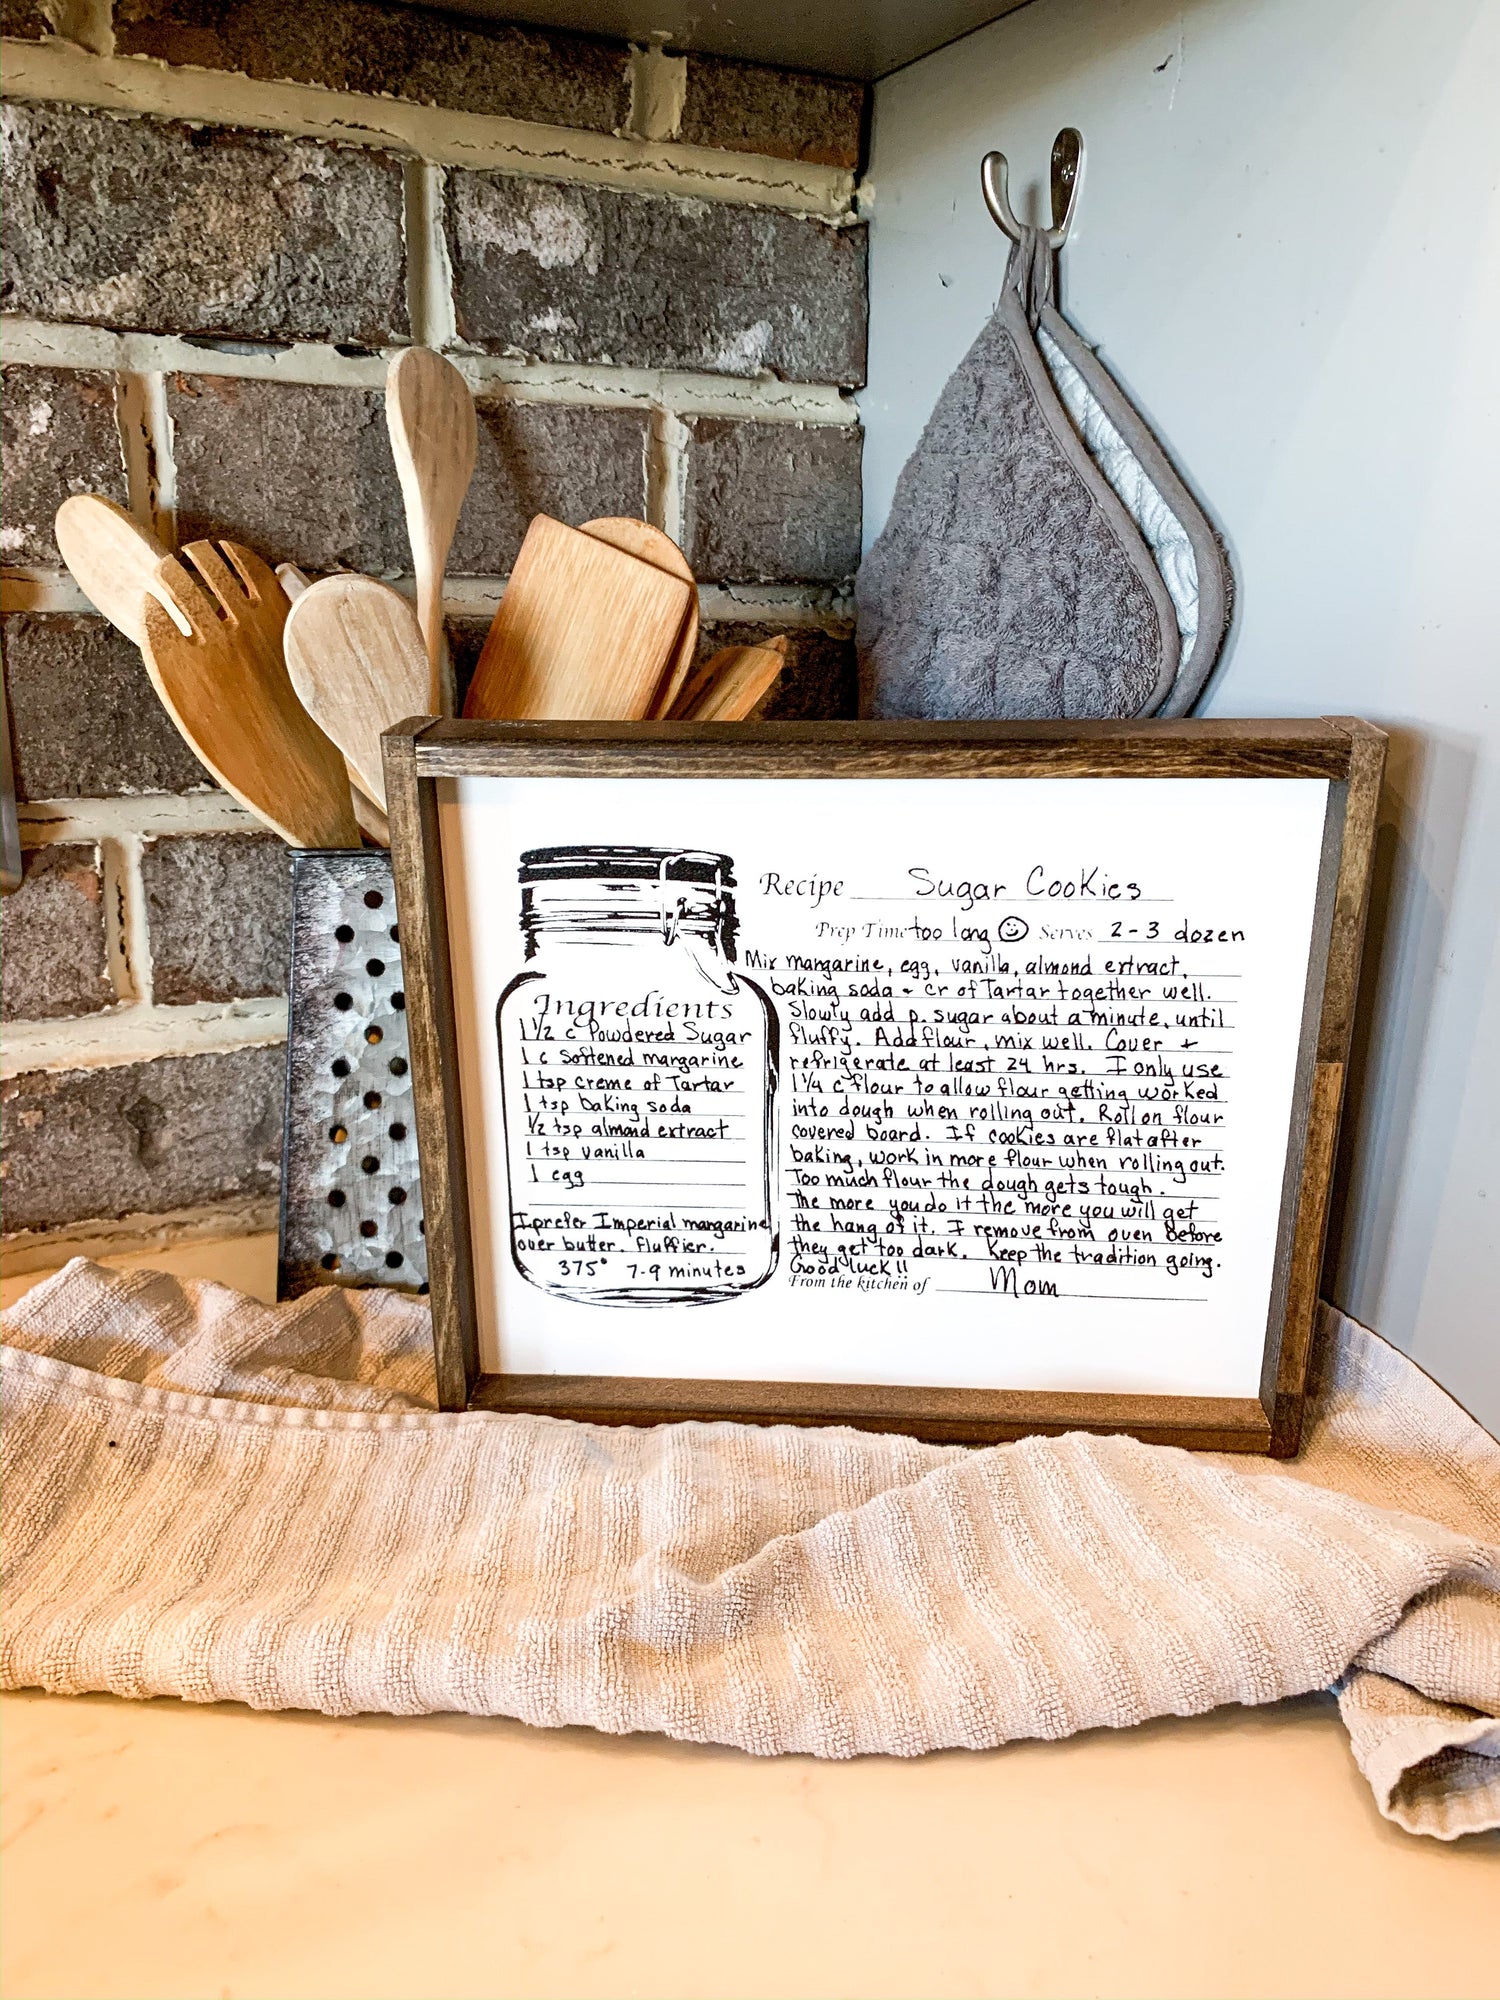 Recipe Sugar Cookies
Prep Time too long ☺ Serves 2-3 dozen
Ingredients
1 1/2 c Powdered Sugar
1 c Softened margarine
1 tsp creme of Tartar
1 tsp baking soda
1/2 tsp almond extract
1 tsp vanilla
1 egg
I prefer Imperial margarine
over butter. Fluffier.
375° 7-9 minutes
Mix margarine, egg, vanilla, almond extract,
baking soda + cr of Tartar together well.
Slowly add p. sugar about a minute, until
fluffy. Add flour, mix well. Cover +
refrigerate at least 24 hrs. I only use
1 1/4 c flour to allow flour getting worked
into dough when rolling out. Roll on flour
covered board. If cookies are flat after
baking, work in more flour when rolling out.
Too much flour the dough gets tough.
The more you do it the more you will get
the hang of it. I remove from oven before
they get too dark. Keep the tradition going.
Good luck!!
From the kitchen of Mom